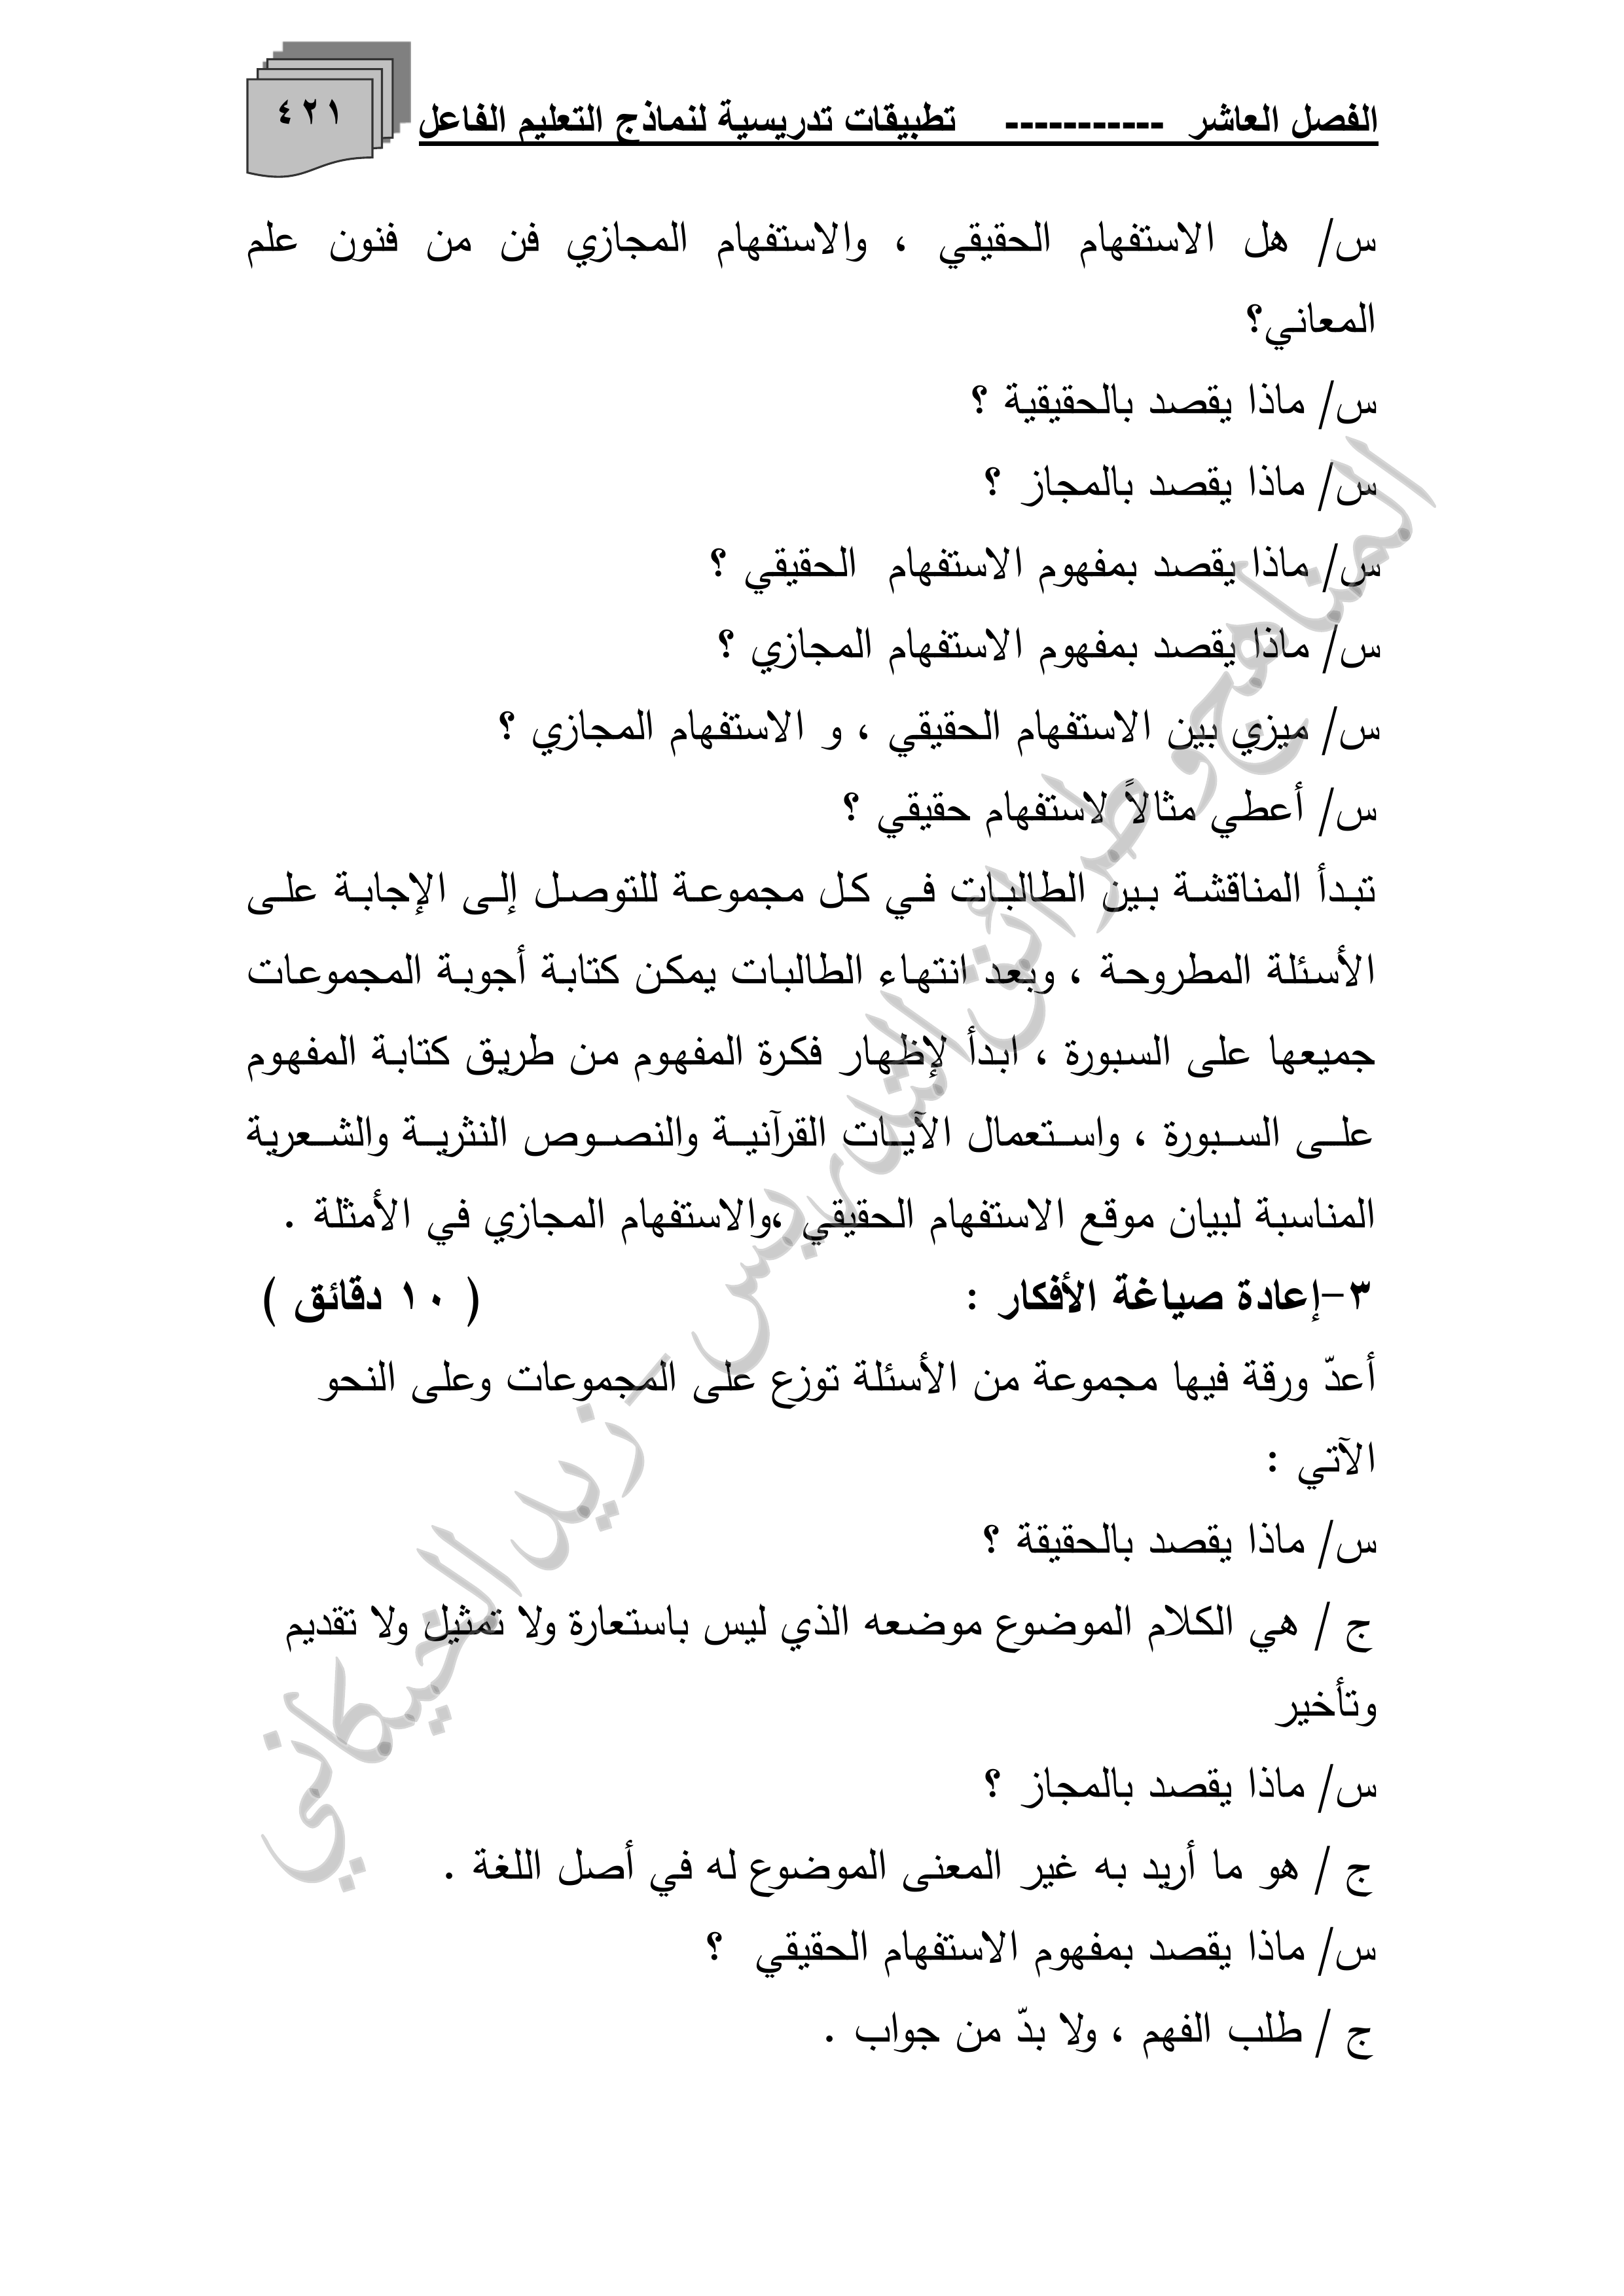 الفصل العاشر ----------- تطبيقات تدريسية لنماذج التعليم الفاعل
٤٢١
س/ هل الاستفهام الحقيقي ، والاستفهام المجازي فن من فنون علم
المعاني؟
س/ ماذا يقصد بالحقيقية ؟
س/ ماذا يقصد بالمجاز ؟
س/ ماذا يقصد بمفهوم الاستفهام الحقيقي ؟
س/ ماذا يقصد بمفهوم الاستفهام المجازي ؟
س/ ميزي بين الاستفهام الحقيقي ، و الاستفهام المجازي ؟
س/ أعطي مثالاً لاستفهام حقيقي ؟
تبدأ المناقشة بين الطالبات في كل مجموعة للتوصل إلى الإجابة على
الأسئلة المطروحة ، وبعد انتهاء الطالبات يمكن كتابة أجوبة المجموعات
جميعها على السبورة ، ابدأ لإظهار فكرة المفهوم من طريق كتابة المفهوم
على السبورة ، واستعمال الآيات القرآنية والنصوص النثرية والشعرية
المناسبة لبيان موقع الاستفهام الحقيقي ،والاستفهام المجازي في الأمثلة .
٣-إعادة صياغة الأفكار : ( ١٠ دقائق )
أعدّ ورقة فيها مجموعة من الأسئلة توزع على المجموعات وعلى النحو
الآتي :
س/ ماذا يقصد بالحقيقة ؟
ج / هي الكلام الموضوع موضعه الذي ليس باستعارة ولا تمثيل ولا تقديم
وتأخير
س/ ماذا يقصد بالمجاز ؟
ج / هو ما أريد به غير المعنى الموضوع له في أصل اللغة .
س/ ماذا يقصد بمفهوم الاستفهام الحقيقي ؟
ج / طلب الفهم ، ولا بدّ من جواب .
المناهج وطرائق التدريس - زيد الخيكاني